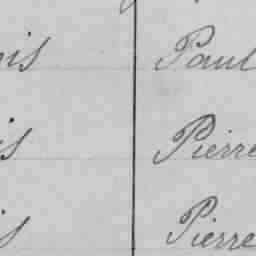 is Paul
is Pierre
is Pierre